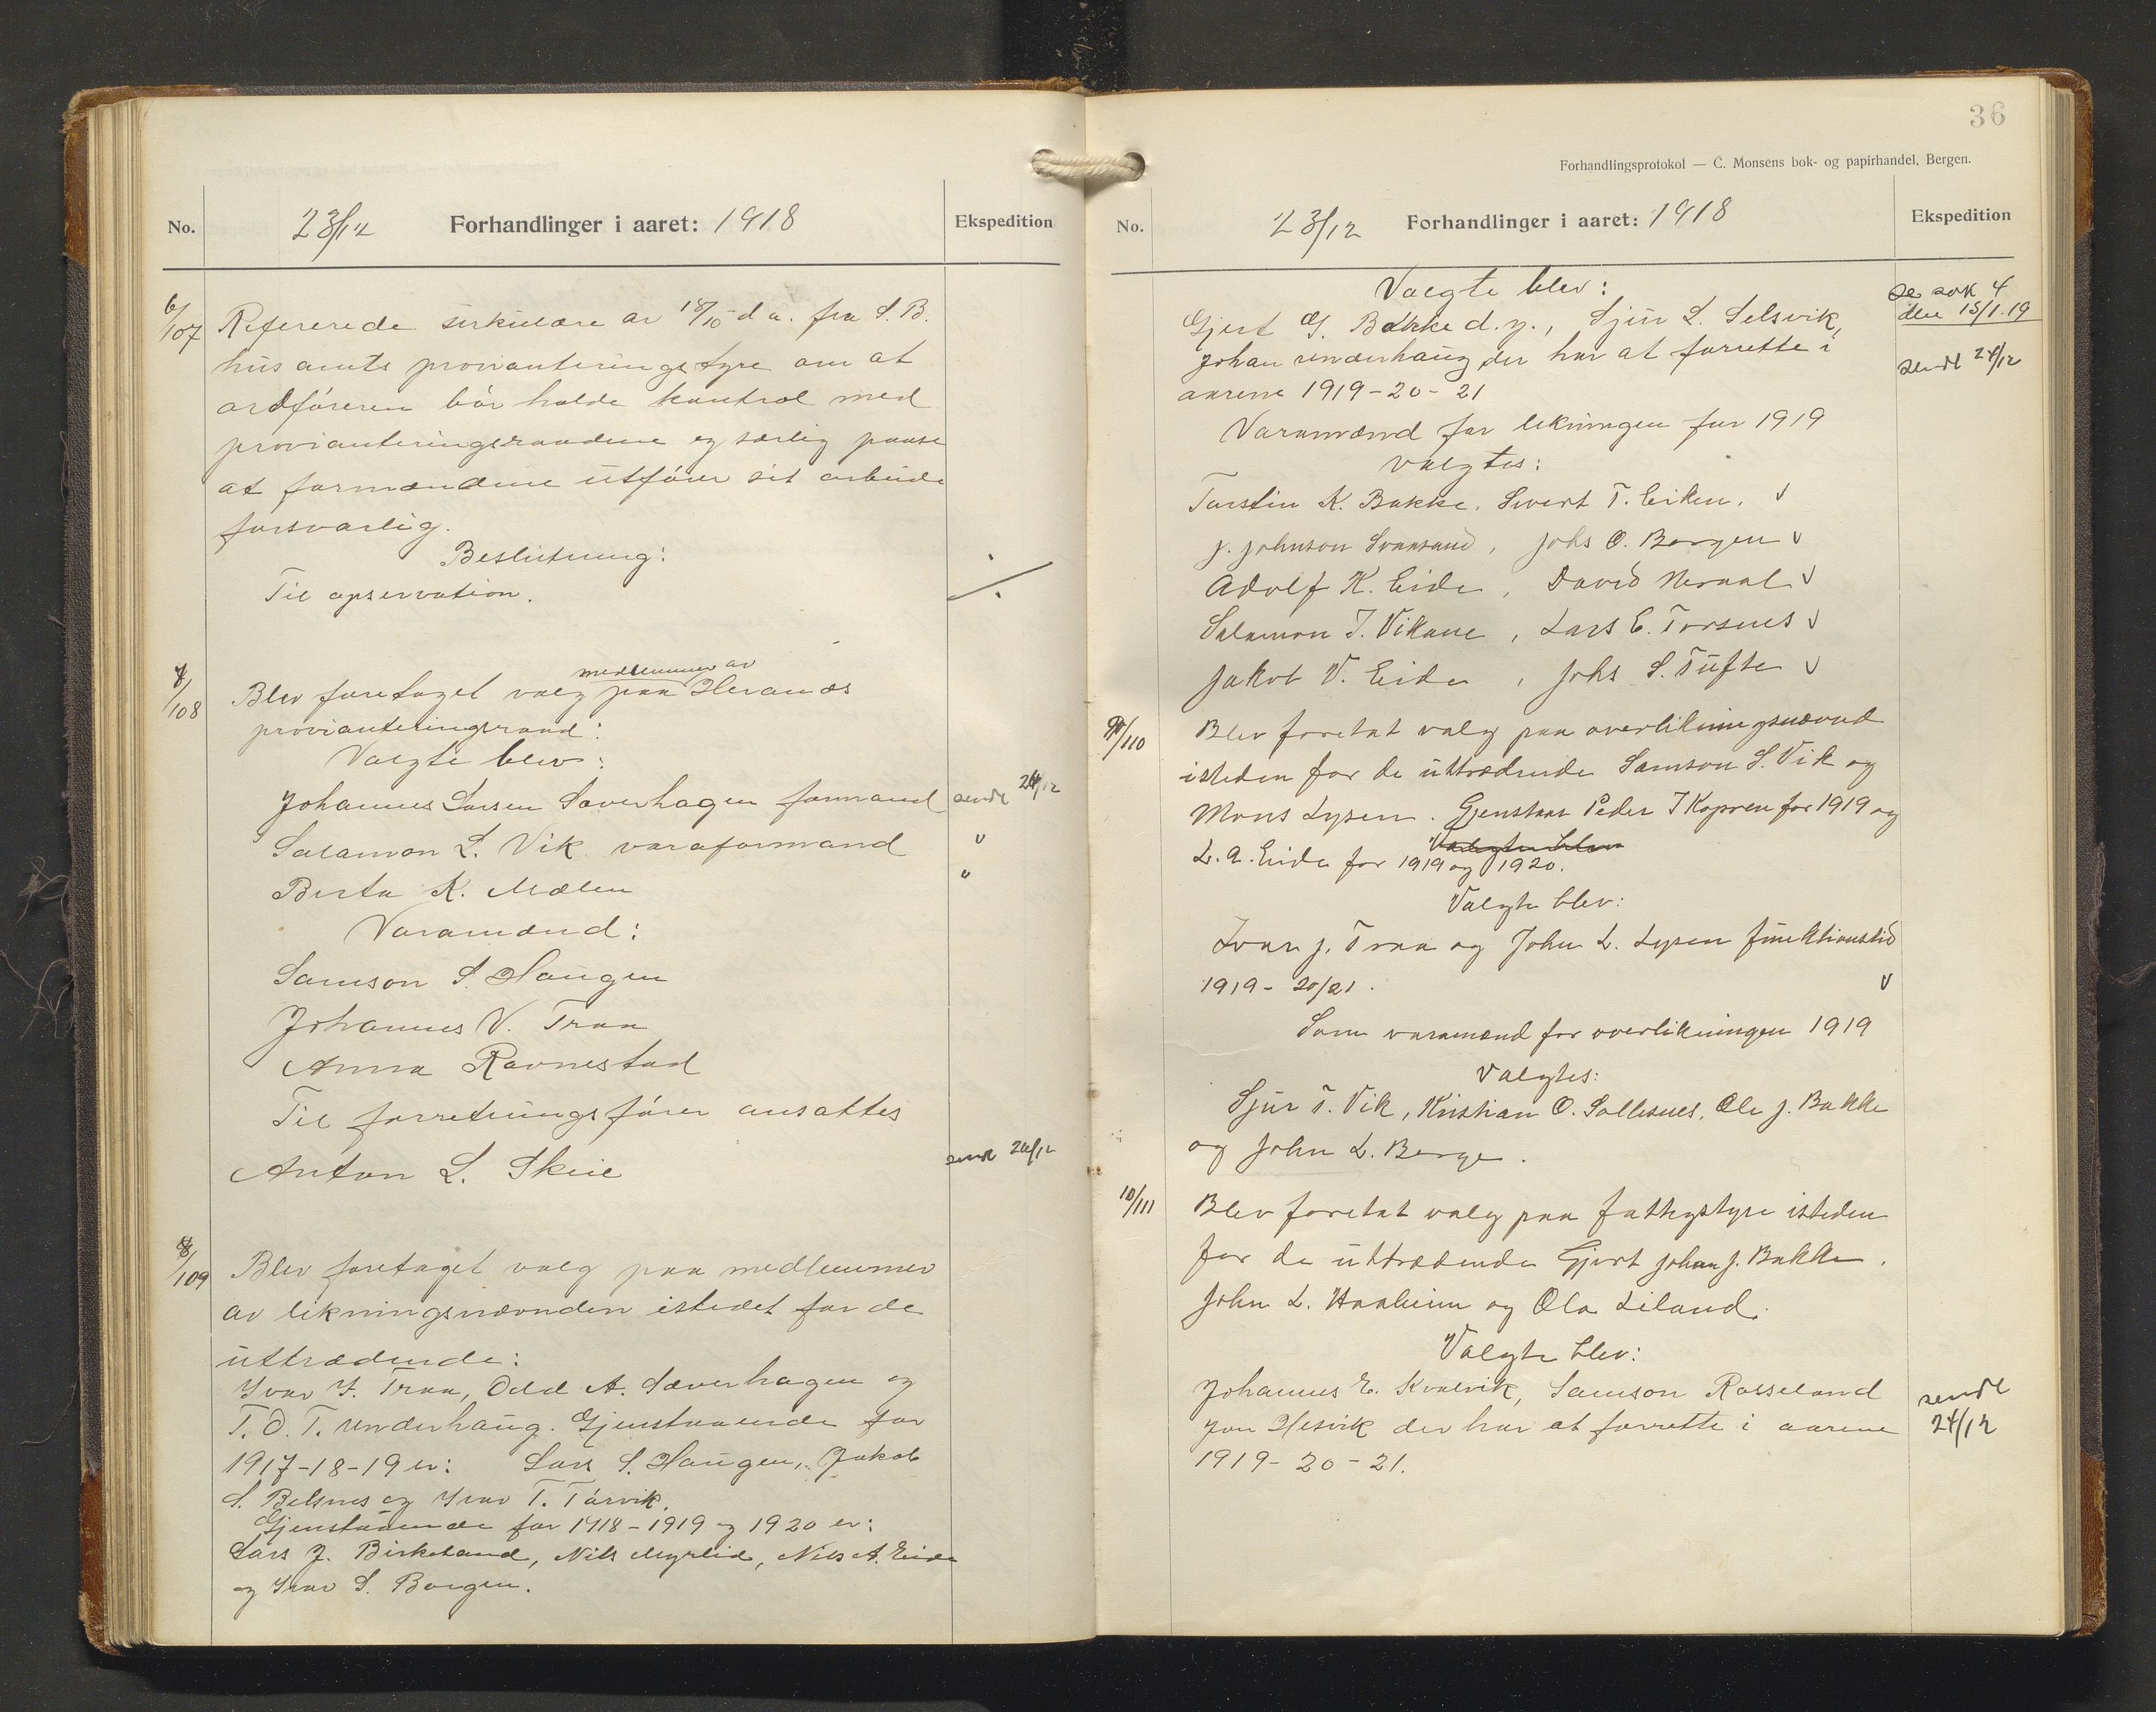 No.
23/12 Forhandlinger i aaret: 1918
Ekspedition
6/107 Refererede sirkulære av 18/10 d a. fra S. B.
hus amts provianteringsstyre om at
ordføreren bør holde kontrol med
provianteringsraadene og særlig paase
at formændene utfører sit arbeide
forsvarlig.
Beslutning:
Til opservation.
7/108 Blev foretaget valg paa medlemmer av Herands
provianteringsraad:
Valgte blev:
Johannes Larsen Saverhagen formand sendt 24/12
Salamon L. Vik varaformand "
Berta K. Mælen "
Varamænd:
Samson S. Haugen
Johannes V. Traa
Anna Ravnestad
Til forretningsfører ansattes
Anton L. Skeie sendt 24/12
8/109 Blev foretaget valg paa medlemmer
av likningsnævnden istedet for de
uttrædende:
Ivar J. Traa, Odd A. Sæverhagen og
T. O. T. Underhaug. Gjenstaaende for
1917-18-19 er: Lars S. Haugen, Jakob
S. Belsnes og Ivar T. Tørvik.
Gjenstaaende for 1918-1919 og 1920 er:
Lars J. Birkeland, Nils Myrlid, Nils A. Eide
og Ivar S. Borgen.
36
Forhandlingsprotokol — C. Monsens bok- og papirhandel, Bergen.
No.
23/12 Forhandlinger i aaret: 1918
Ekspedition
Valgte blev:
se sak 4
den 15/1.19
Gjert G. Bakke d. y., Sjur L. Selsvik,
Johan Underhaug der har at forrette i
sendt 24/12
aarene 1919-20-21
Varamænd for likningen for 1919
valgtes:
Torstein K. Bakke, Sivert T. Eiken, v
J. Johnson Svaasand, Johs O. Borgen v
Adolf K. Eide, David Neraal v
Salamon J. Vikane, Lars E. Torsnes v
Jakob V. Eide, Johs S. Tufte v
9/110 Blev foretat valg paa overlikningsnævnd
isteden for de uttrædende Samson S. Vik og
Mons Lysen. Gjenstaar Peder J Kopren for 1919 og
Valgte blev
L. A. Eide for 1919 og 1920.
Valgte blev:
Ivar J. Traa og John L. Lysen funktionstid
1919-20/21. v
Som varamænd for overlikningen 1919
valgtes:
Sjur T. Vik, Kristian O. Sollesnes, Ole J. Bakke
og John L. Berge.
10/111 Blev foretat valg paa fattigstyre isteden
for de uttrædende Gjert Johan J. Bakke,
John L. Haaheim og Ola Liland.
Valgte blev:
Johannes E. Kvalvik, Samson Rosseland
sendt
Jon Hesvik der har at forrette i aarene
24/12
1919-20-21.